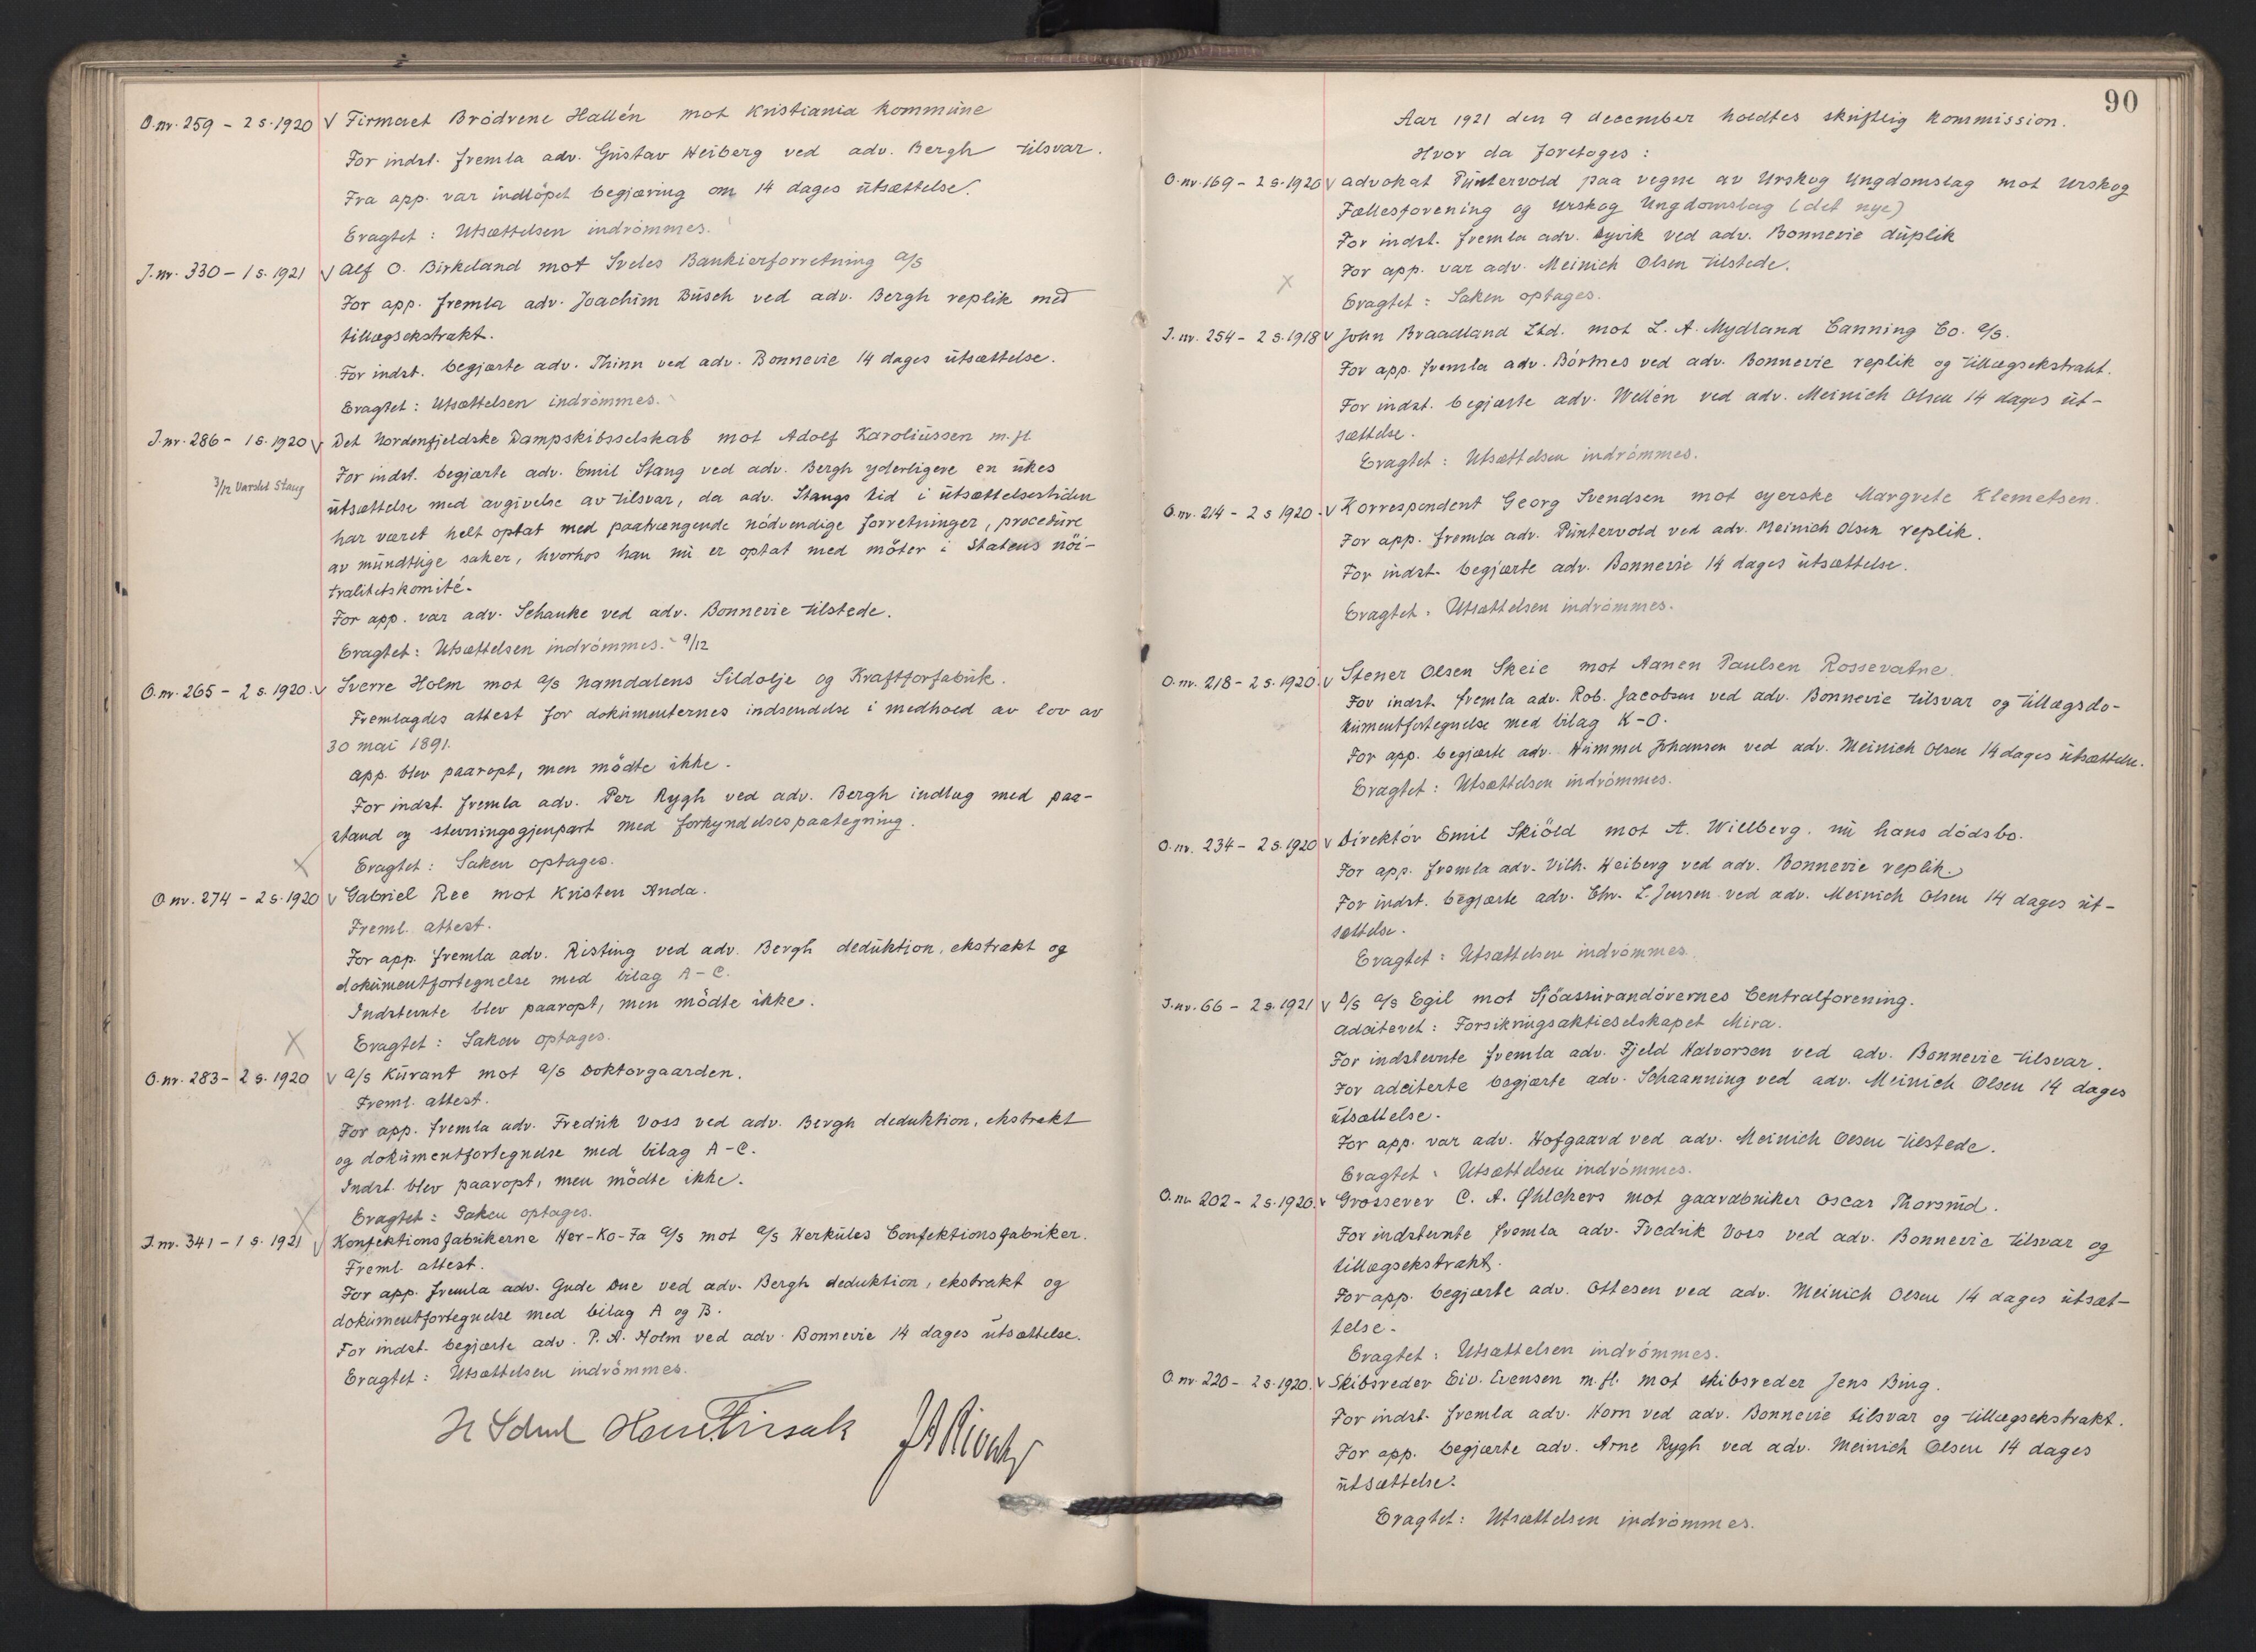 O.nr. 259 - 2 s. 1920 V Firmaet Brödrene Hallén mot Kristiania kommune
For indst. fremla adv. Gustav Heiberg ved adv. Bergh tilsvar.
Fra app. var indlöpet begjæring om 14 dages utsættelse.
Eragtet: Utsættelsen indrömmes.
J.nr. 330 - 1 s. 1921 V Alf O. Birkeland mot Sveles Bankierforretning a/s
For app. fremla adv. Joachim Busch ved adv. Bergh replik med
tillægsekstrakt.
For indst. begjærte adv. Thinn ved adv. Bonnevie 14 dages utsættelse.
Eragtet: Utsættelsen indrömmes.
J.nr. 286 - 1 s. 1920 V Det Nordenfjeldske Dampskibsselskab mot Adolf Karoliussen m.fl.
For indst. begjærte adv. Emil Stang ved adv. Bergh yderligere en ukes
3/12 Varslet Stang
utsættelse med avgivelse av tilsvar, da adv. Stangs tid i utsættelsestiden
har været helt optat med paatrængende nödvendige forretninger, procedure
av mundtlige saker, hvorhos han nu er optat med möter i Statens nöi-
tralitetskomité.
For app. var adv. Schanke ved adv. Bonnevie tilstede.
Eragtet: Utsættelsen indrömmes. - 9/12
O.nr. 265 - 2 s. 1920. V Sverre Holm mot a/s Namdalens Sildolje og Kraftforfabrik.
Fremlagdes attest for dokumenternes indsendelse i medhold av lov av
30 mai 1891.
App. blev paaropt, men mödte ikke.
For indst. fremla adv. Per Rygh ved adv. Bergh indlæg med paa-
stand og stevningsgjenpart med forkyndelsespaategning.
X Eragtet: Saken optages.
O nr. 274 - 2 s. 1920 V Gabriel Ree mot Kristen Anda.
Freml. attest.
For app. fremla adv. Risting ved adv. Bergh deduktion, ekstrakt og
dokumentfortegnelse med bilag A-C.
Indstevnte blev paaropt, men mödte ikke.
X Eragtet: Saken optages.
O.nr. 283 - 2 s. 1920 V A/s Kurant mot a/s Doktorgaarden.
Freml. attest.
For app. fremla adv. Fredrik Voss ved adv. Bergh deduktion, ekstrakt
og dokumentfortegnelse med bilag A-C.
Indst. blev paaropt, men mödte ikke.
X Eragtet: Saken optages.
J.nr. 341 - 1 s. 1921 V Konfektionsfabrikerne Her-Ko-Fa a/s mot a/s Herkules Confektionsfabriker.
Freml. attest.
For app. fremla adv. Gude Due ved adv. Bergh deduktion, ekstrakt og
dokumentfortegnelse med bilag A og B.
For indst. begjærte adv. P. A. Holm ved adv. Bonnevie 14 dages utsættelse.
Eragtet: Utsættelsen indrömmes.
90
Aar 1921 den 9 december holdtes skriftlig kommission.
Hvor da foretoges:
O.nr. 169 - 2 s. 1920 V Advokat Puntervold paa vegne av Urskog Ungdomslag mot Urskog
Fællesforening og Urskog Ungdomslag (det nye)
For indst. fremla adv. Eyvik ved adv. Bonnevie duplik
For app. var adv. Meinich Olsen tilstede.
X Eragtet: Saken optages.
J.nr. 254 - 2 s. 1918 V John Braadland Ltd. mot L. A. Mydland Canning Co. a/s.
For app. fremla adv. Börtnes ved adv. Bonnevie replik og tillægsekstrakt.
For indst. begjærte adv. Wellén ved adv. Meinich Olsen 14 dages ut-
sættelse.
Eragtet: Utsættelsen indrömmes.
O.nr. 214 - 2 s 1920. V Korrespondent Georg Svendsen mot syerske Margrete Klemetsen.
For app. fremla adv. Puntervold ved adv. Meinich Olsen replik.
For indst. begjærte adv. Bonnevie 14 dages utsættelse.
Eragtet: Utsættelsen indrömmes.
O.nr. 218 - 2 s. 1920. V Stener Olsen Skeie mot Aanen Paulsen Rossevatne.
For indst. fremla adv. Rob. Jacobsen ved adv. Bonnevie tilsvar og tillægsdo-
kumentfortegnelse med bilag K-O.
For app. begjærte adv. Hummel Johansen ved adv. Meinich Olsen 14 dages utsættelse.
Eragtet: Utsættelsen indrömmes.
O.nr. 234 - 2 s. 1920 V Direktör Emil Skiöld mot A. Willberg. nu hans dödsbo.
For app. fremla adv. Vilh. Heiberg ved adv. Bonnevie replik.
For indst. begjærte adv. Chr. L. Jensen ved adv. Meinich Olsen 14 dages ut-
sættelse.
Eragtet: Utsættelsen indrömmes.
J.nr. 66 - 2 s. 1921 V D/s a/s Egil mot Sjöassurandörernes Centralforening.
Adciteret: Forsikringsaktieselskapet Mira.
For indstevnte fremla adv. Fjeld Halvorsen ved adv. Bonnevie tilsvar.
For adciterte begjærte adv. Schaanning ved adv. Meinich Olsen 14 dages
utsættelse.
For app. var adv. Hofgaard ved adv. Meinich Olsen tilstede.
Eragtet: Utsættelsen indrömmes.
O.nr. 202 - 2 s. 1920. V Grosserer C. A. Øhlckers mot gaardbruker Oscar Thorsrud.
For indstevnte fremla adv. Fredrik Voss ved adv. Bonnevie tilsvar og
tillægsekstrakt.
For app. begjærte adv. Ottesen ved adv. Meinich Olsen 14 dages utsæt-
telse.
Eragtet: Utsættelsen indrömmes.
O.nr. 220 - 2 s. 1920. V Skibsreder Eiv. Evensen m.fl. mot skibsreder Jens Bing.
For indst. fremla adv. Horn ved adv. Bonnevie tilsvar og tillægsekstrakt.
For app. begjærte adv. Arne Rygh ved adv. Meinich Olsen 14 dages
utsættelse.
Eragtet: Utsættelsen indrömmes.